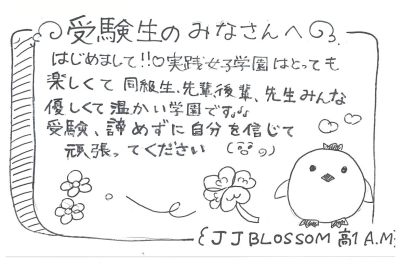 受験生のみなさんへ
はじめまして!!♡実践女子学園はとっても
楽しくて同級生、先輩、後輩、先生みんな
優しくて温かい学園です♪♪
受験、諦めずに自分を信じて
頑張ってください
{JJ BLOSSOM 高1 A.M}